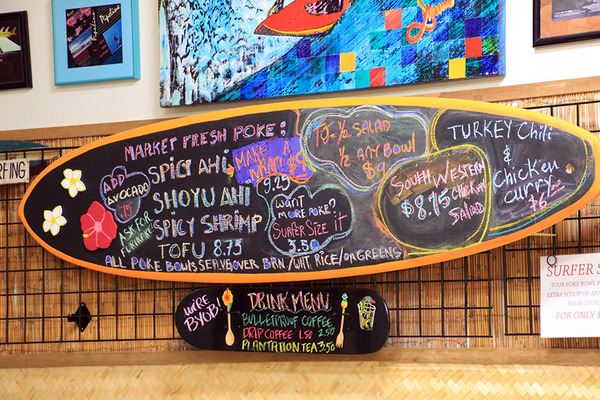 RFING
MARKET FRESH POKE:
SPICY AHI
SHOYU AHI
SPICY SHRIMP
TOFU 8.75
ADD
AVOCADO
ASK FOR
MAKE A
WRAP! $9
9.25
WANT
MORE POKE?
SURFER SIZE IT
3.50
ALL POKE BOWLS SERVE OVER BRN/WHT RICE/ON GREENS
½ SALAD
½ ANY BOWL
$9
SOUTH WESTERN
$8.75 CHICKEN
SALAD
TURKEY Chili
&
Chicken
CURRY
$6
WE'RE
BYOB!
DRINK MENU
BULLETPROOF COFFEE
DRIP COFFEE 1.50 2.50
PLANTATION TEA 3.50
SURFER S
YOUR POKE BOWL W
EXTRA SCOOP OF AN
FOR ONLY $